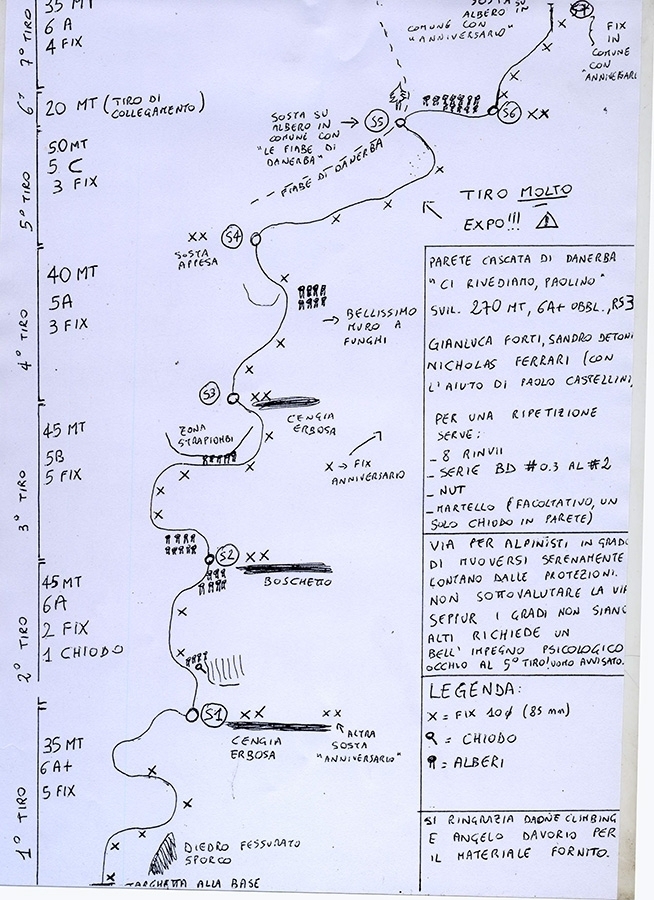 35 MT
6 A
4 FIX
7° TIRO
SOSTA SU
ALBERO IN
COMUNE CON
"ANNIVERSARIO"
S7
FIX
IN
COMUNE
CON
"ANNIVERSARI
6°
20 MT (TIRO DI
COLLEGAMENTO)
SOSTA SU
ALBERO IN
COMUNE CON
"LE FIABE DI
DANERBA"
S5
S6
XX
FIABE DI DANERBA
50MT
5 C
3 FIX
5° TIRO
TIRO MOLTO
EXPO!!!
XX
S4
SOSTA
APPESA
40 MT
5A
3 FIX
4° TIRO
BELLISSIMO
MURO A
FUNGHI
S3
XX
CENGIA
ERBOSA
45 MT
5B
5 FIX
3° TIRO
ZONA
STRAPIOMBI
X → FIX
ANNIVERSARIO
S2
XX
BOSCHETTO
45 MT
6A
2 FIX
1 CHIODO
2° TIRO
S1
XX
XX
CENGIA
ERBOSA
ALTRA
SOSTA
"ANNIVERSARIO"
35 MT
6A+
5 FIX
1° TIRO
DIEDRO FESSURATO
SPORCO
TARGHETTA ALLA BASE
PARETE CASCATA DI DANERBA
"CI RIVEDIAMO, PAOLINO"
SVIL. 270 MT, 6A+ OBBL., RS3
GIANLUCA FORTI, SANDRO DETONI
NICHOLAS FERRARI (CON
L'AIUTO DI PAOLO CASTELLINI)
PER UNA RIPETIZIONE
SERVE:
- 8 RINVII
- SERIE BD #0.3 AL #2
- NUT
- MARTELLO (FACOLTATIVO, UN
SOLO CHIODO IN PARETE)
VIA PER ALPINISTI IN GRADO
DI MUOVERSI SERENAMENTE
LONTANO DALLE PROTEZIONI.
NON SOTTOVALUTARE LA VIA
SEPPUR I GRADI NON SIANO
ALTI RICHIEDE UN
BELL'IMPEGNO PSICOLOGICO
OCCHIO AL 5° TIRO! UOMO AVVISATO..
LEGENDA:
X = FIX 10ϕ (85 mm)
= CHIODO
= ALBERI
SI RINGRAZIA DAONE CLIMBING
E ANGELO DAVORIO PER
IL MATERIALE FORNITO.